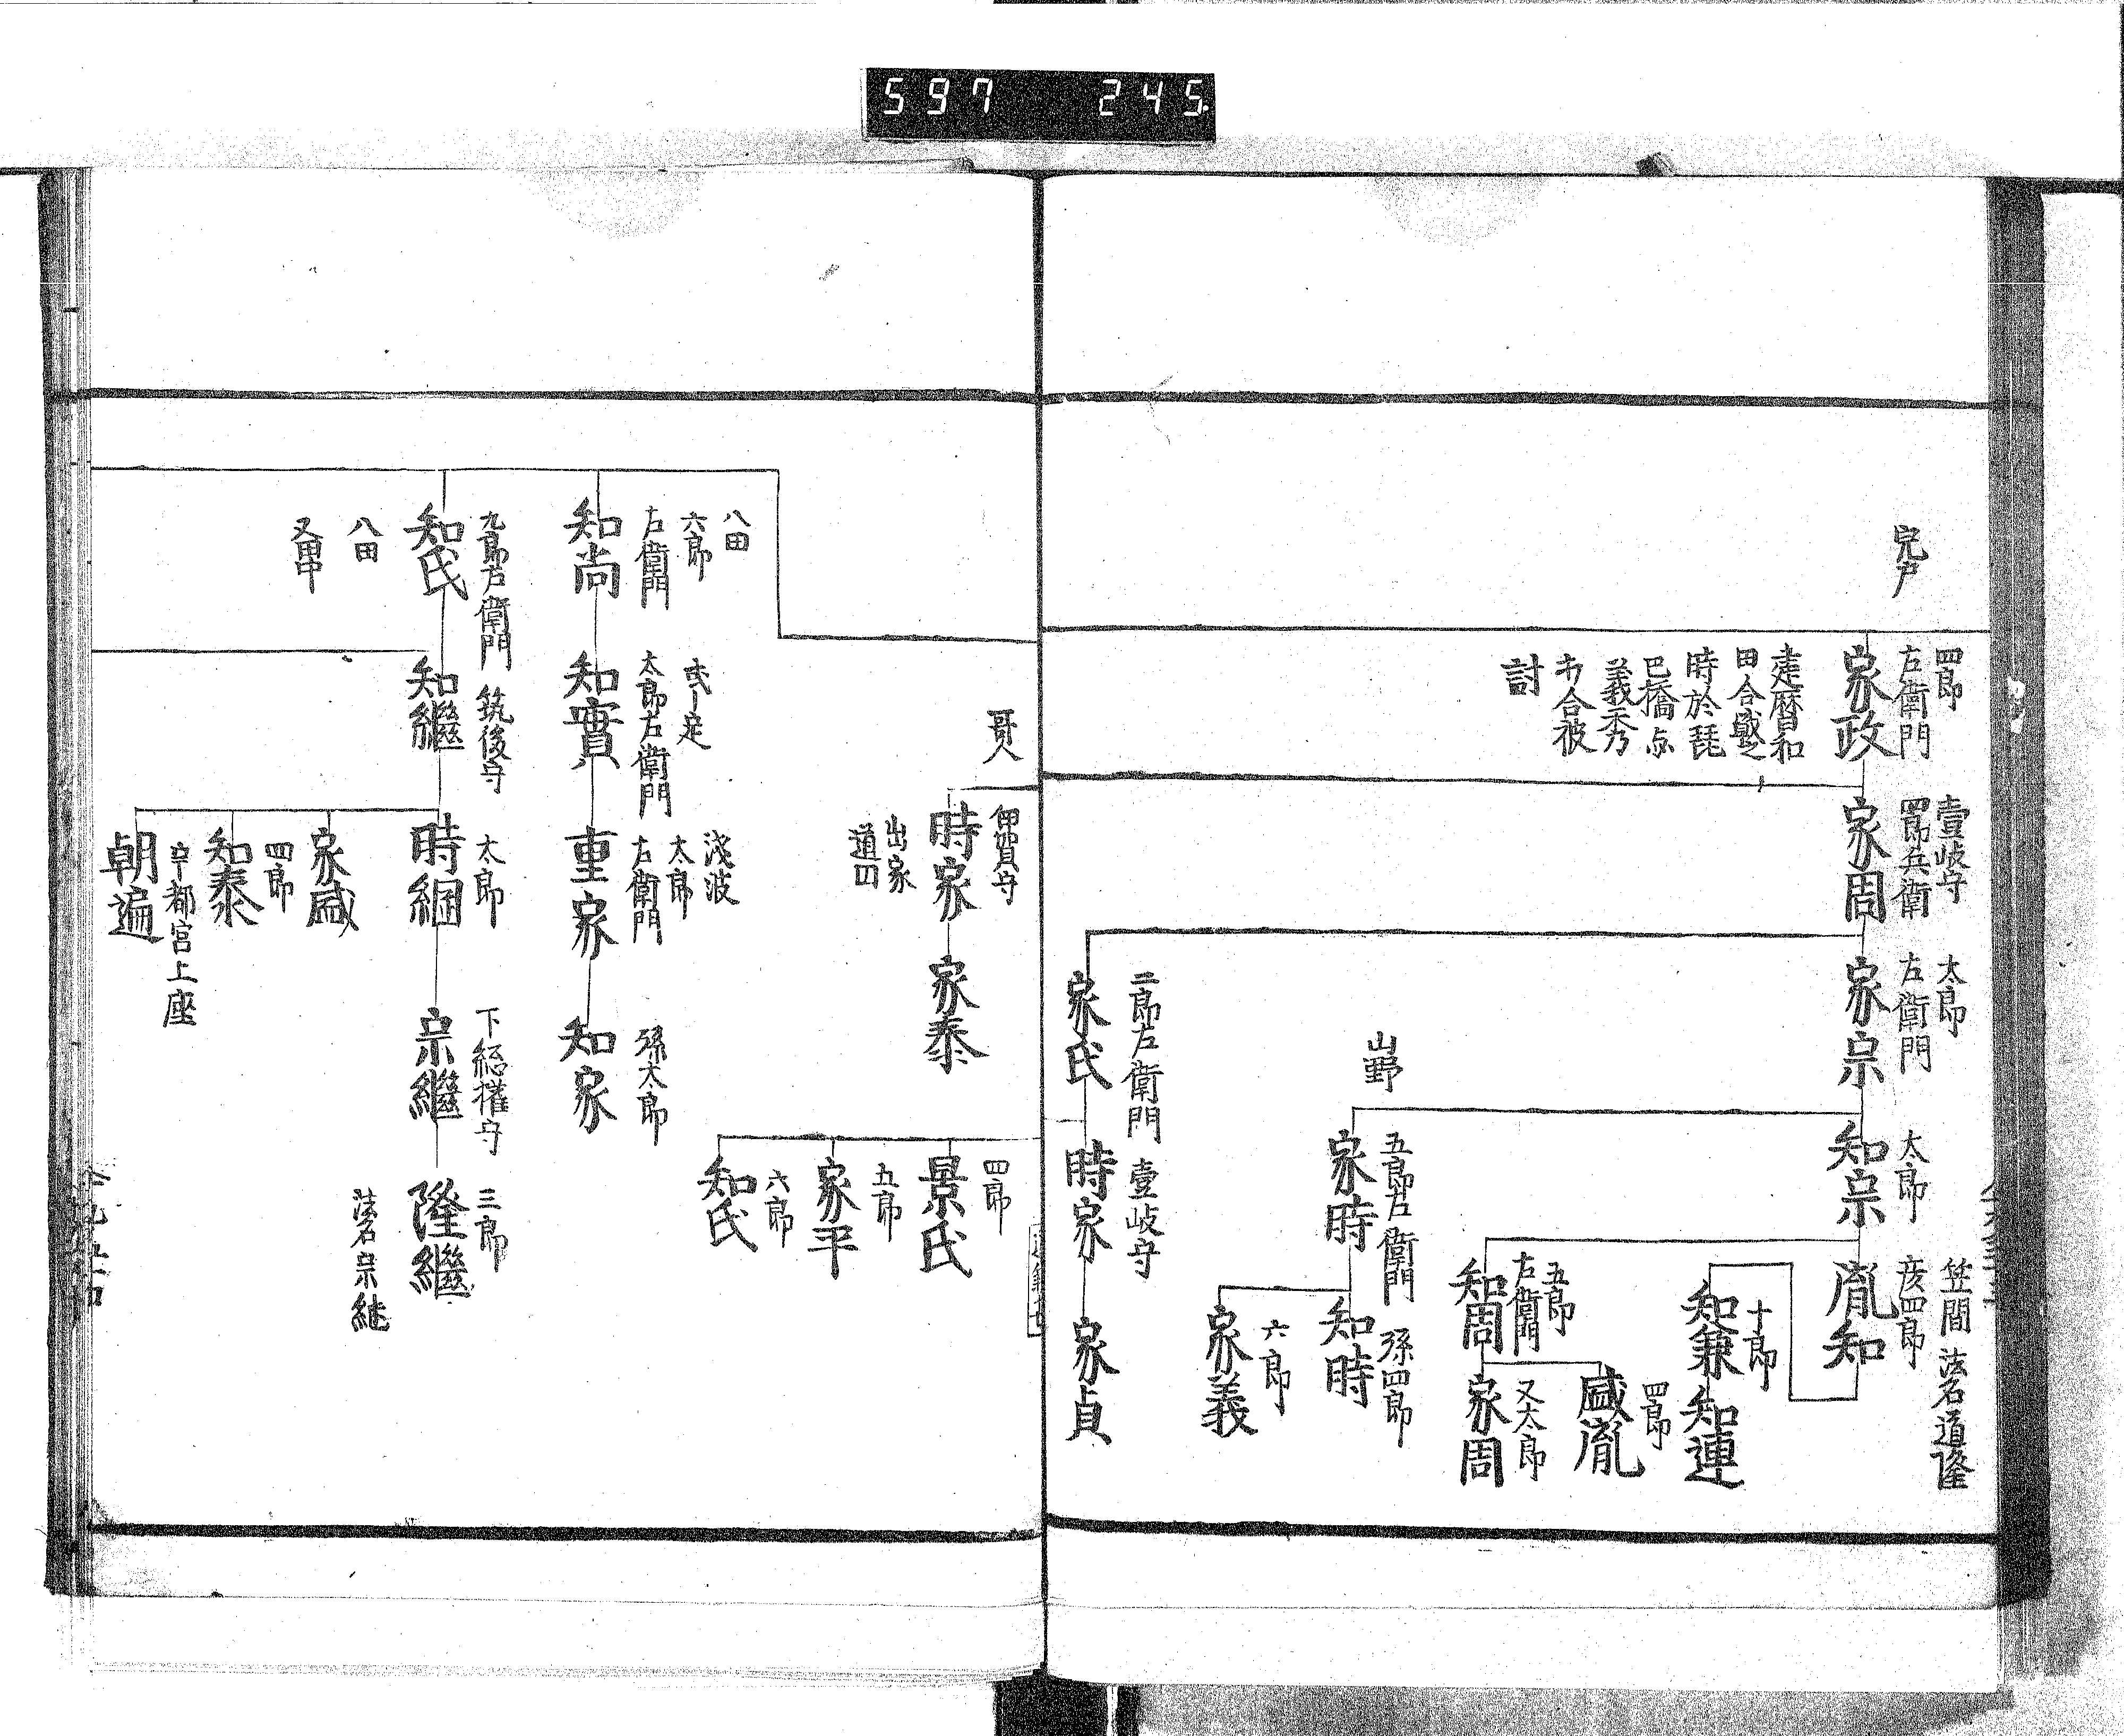 597 245
宍戸
四郎
左衛門
家政
建暦和
田合戰之
時於琵
巴橋与
義秀
才合被
討
壹岐守
四郎兵衛
家周
太郎
左衛門
家宗
太郎
知宗
笠間 法名道隆
彦四郎
胤知
十郎
知兼
知連
五郎
右衛門
知周
四郎
盛胤
又太郎
家周
山野
五郎左衛門
家時
孫四郎
知時
六郎
家義
二郎左衛門
家氏
壹岐守
時家
家貞
哥人
伊賀守
時家
出家
道四
家泰
四郎
景氏
五郎
家平
六郎
知氏
八田
六郎
右衛門
知尚
太郎左衛門
知實
浅波
太郎
右衛門
重家
孫太郎
知家
九郎右衛門
知氏
八田
又田中
筑後守
知繼
太郎
時綱
下総權守
宗繼
三郎
隆繼
法名宗継
家盛
四郎
知泰
宇都宮上座
朝遍